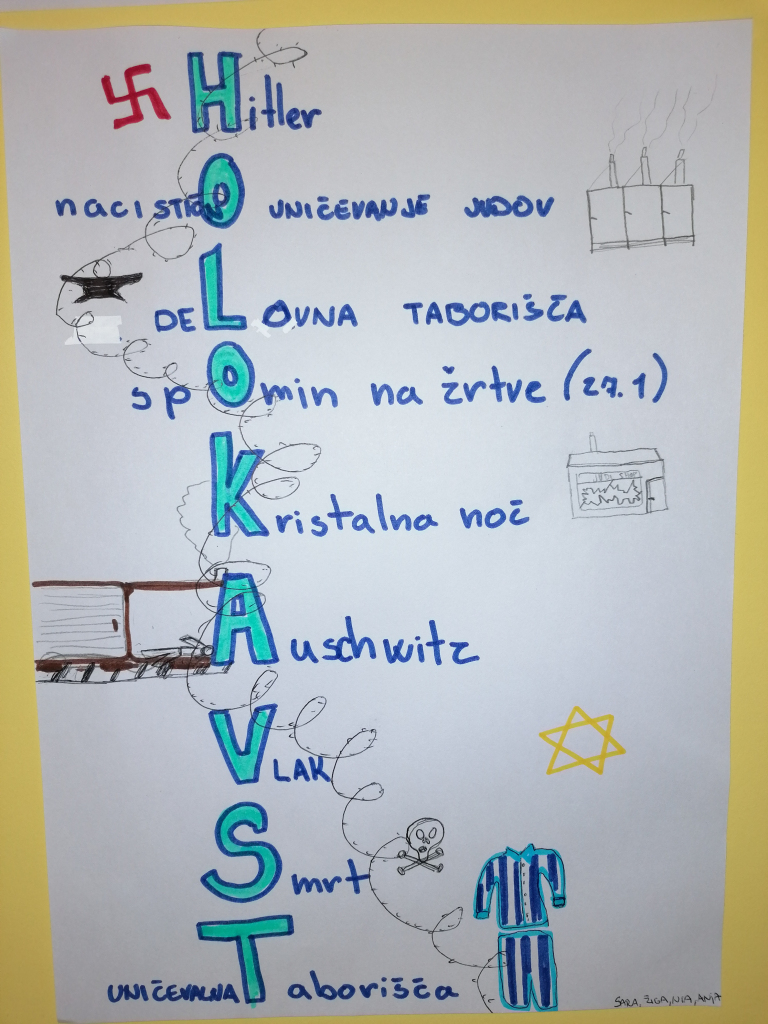 Hitler
nacistično uničevanje Judov
DELOVNA TABORIŠČA
spomin na žrtve (27.1)
Kristalna noč
Auschwitz
VLAK
Smrt
UNIČEVALNA Taborišča
SARA, ŽIGA, NIA, ANJA